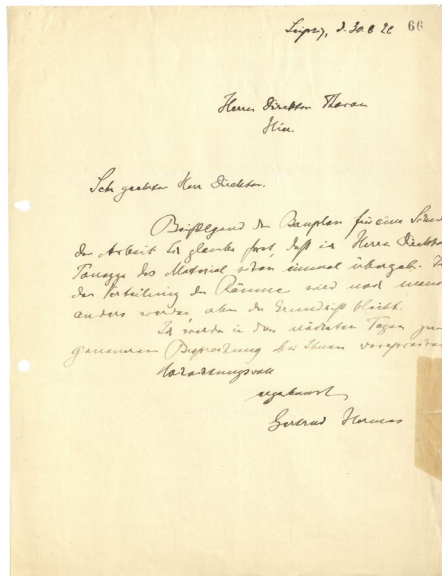 Leipzig, d. 30.6 26 66
Herrn Direktor
Hier.
Sehr geehrter Herr Direktor.
Beifolgend der Bauplan für eine Schule
der Arbeit Ich glaube fast, daß ich Herrn Direktor
das Material schon einmal übergab. In
der Verteilung der Räume wird noch
anders werden, aber der Grundriß bleibt.
Ich werde in den nächsten Tagen zur
genaueren Besprechung bei Ihnen vorsprechen
Hochachtungsvoll
ergebenst
Gertrud Hermes